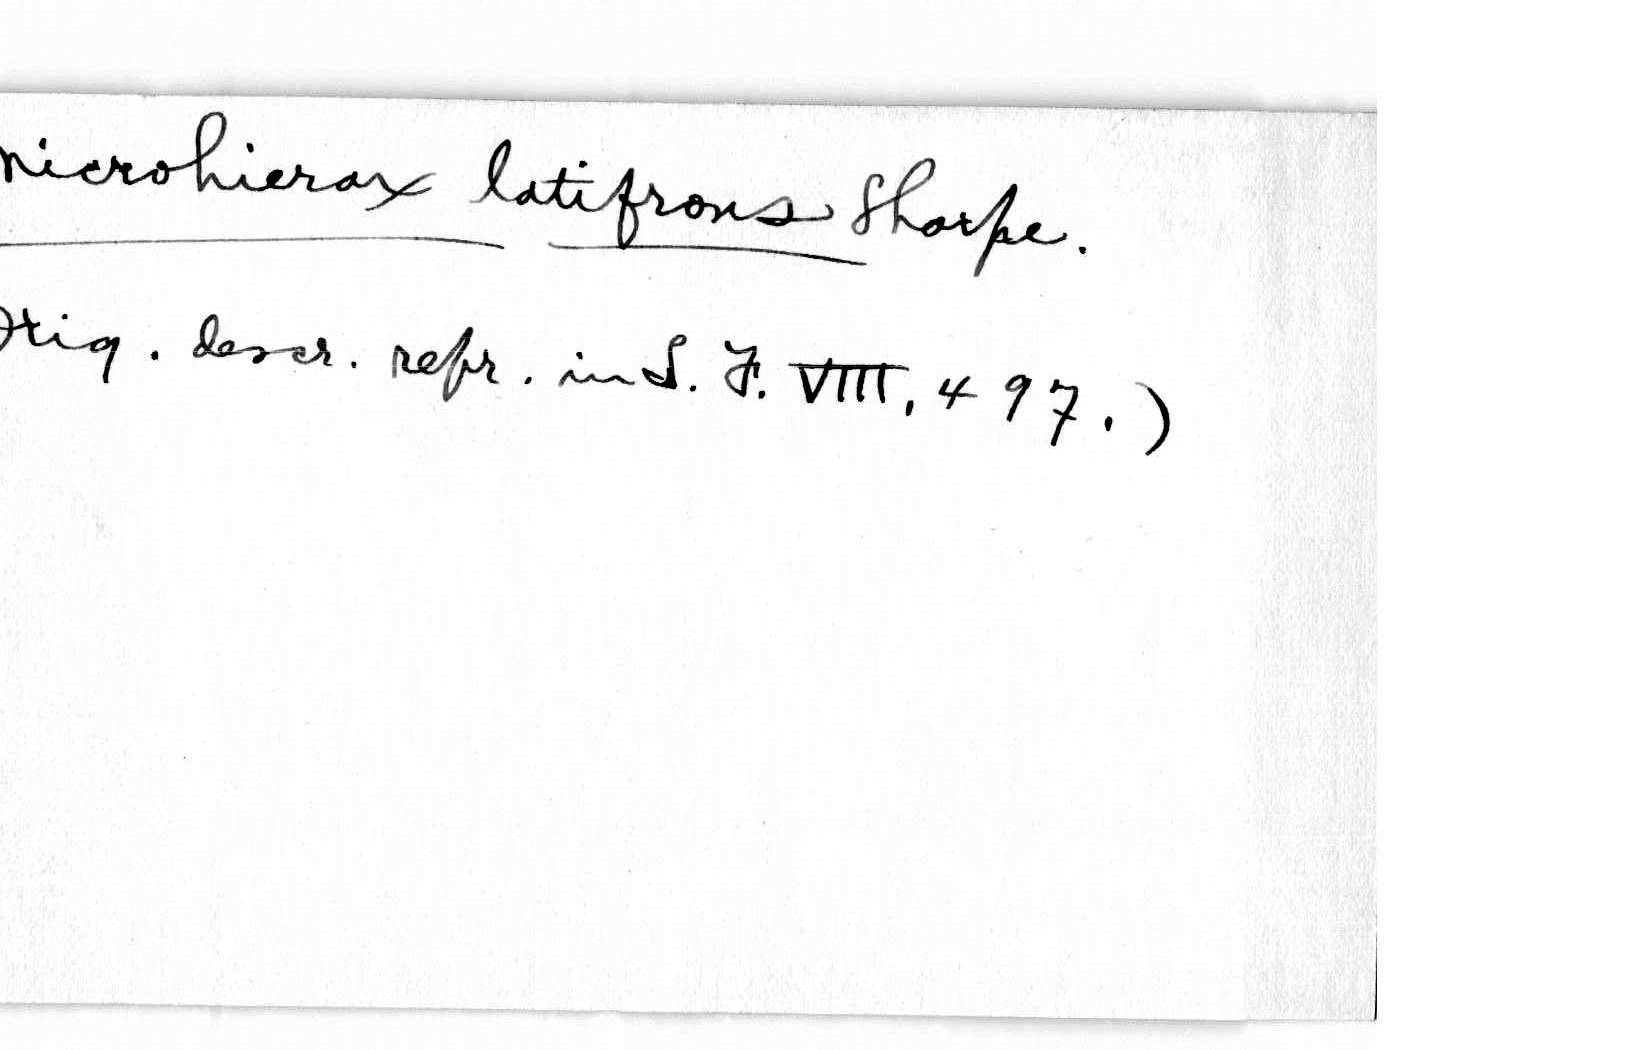 Microhierax latifrons Sharpe.
Orig. descr. repr. in S. F. VIII, 497.)